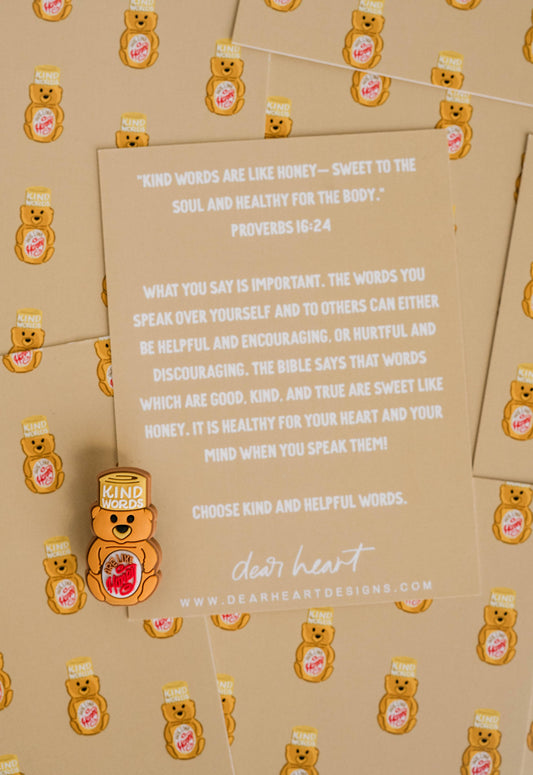 "KIND WORDS ARE LIKE HONEY— SWEET TO THE
SOUL AND HEALTHY FOR THE BODY."
PROVERBS 16:24
WHAT YOU SAY IS IMPORTANT. THE WORDS YOU
SPEAK OVER YOURSELF AND TO OTHERS CAN EITHER
BE HELPFUL AND ENCOURAGING, OR HURTFUL AND
DISCOURAGING. THE BIBLE SAYS THAT WORDS
WHICH ARE GOOD, KIND, AND TRUE ARE SWEET LIKE
HONEY. IT IS HEALTHY FOR YOUR HEART AND YOUR
MIND WHEN YOU SPEAK THEM!
CHOOSE KIND AND HELPFUL WORDS.
dear heart
WWW.DEARHEARTDESIGNS.COM
KIND
WORDS
ARE LIKE
Honey